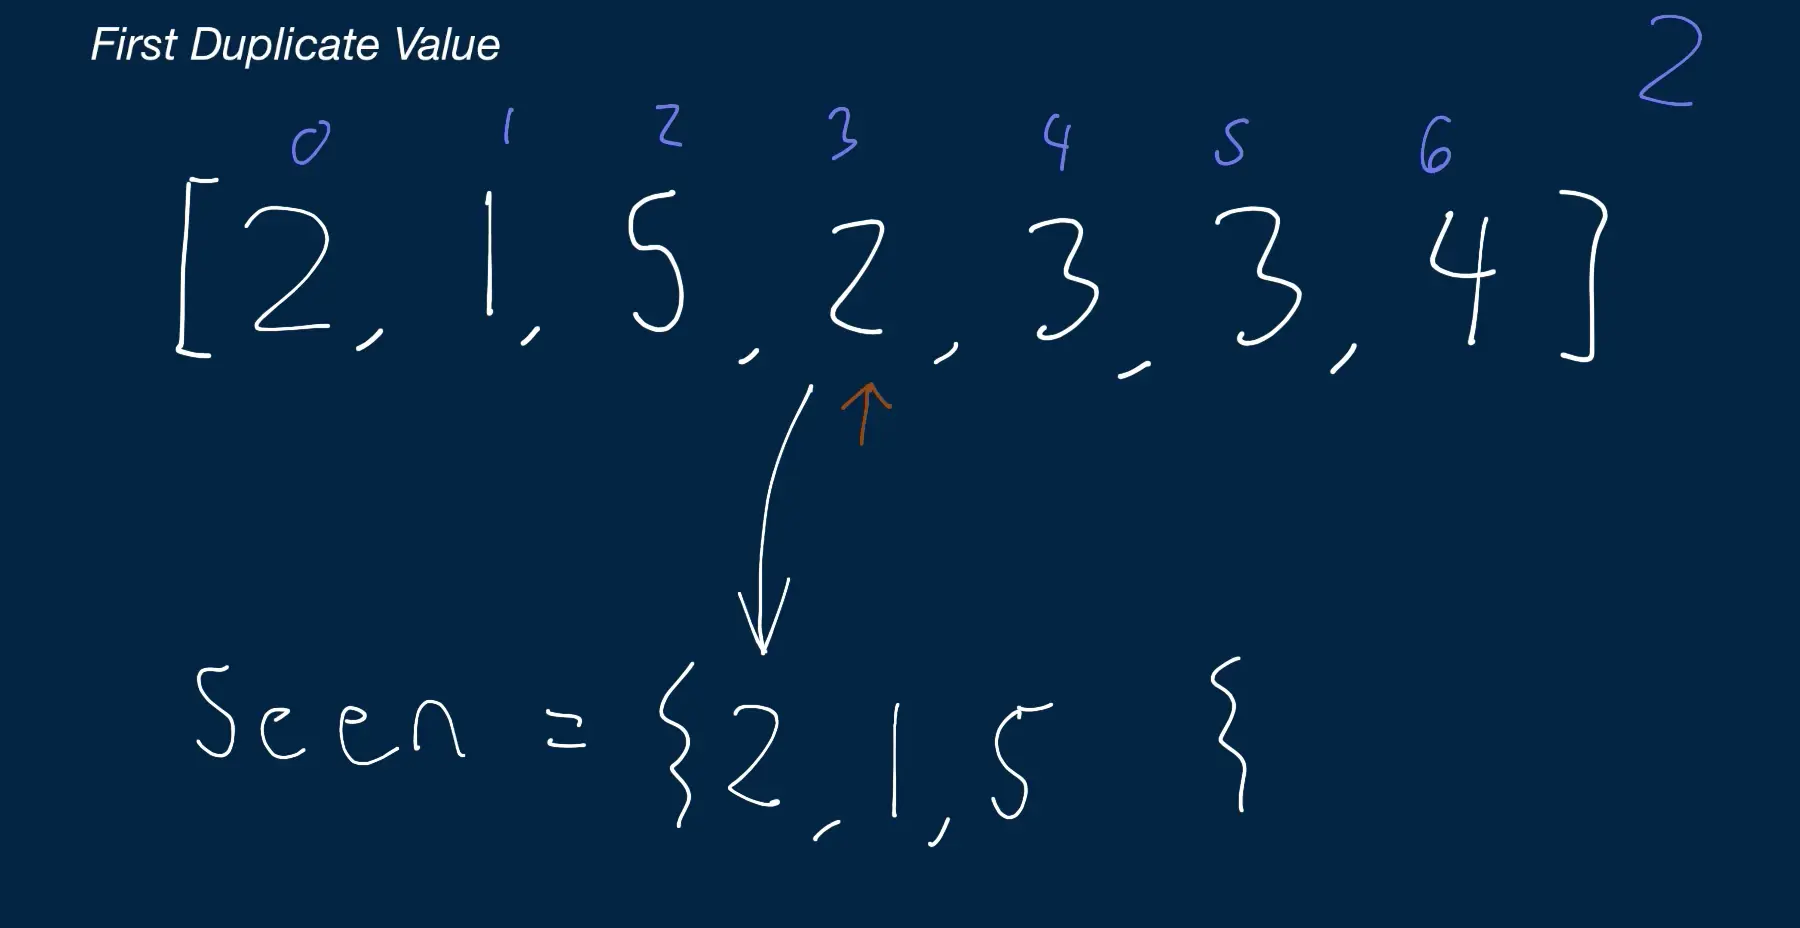 First Duplicate Value
2
0 1 2 3 4 5 6
[2, 1, 5, 2, 3, 3, 4]
Seen = {2, 1, 5 {